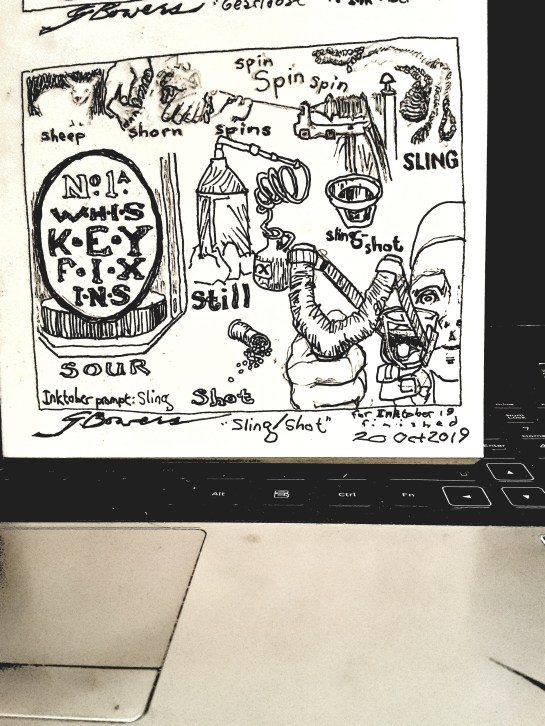 G Bowers
spin
Spin spin
sheep
shorn
spins
SLING
No. 1A
WHIS
K·E·Y
F·I·X
I·N·S
sling-shot
X
Still
SOUR
Shot
Inktober prompt: Sling
G Bowers
"Sling/Shot"
for Inktober 19
finished
20 Oct 2019
Alt
Ctrl
Fn